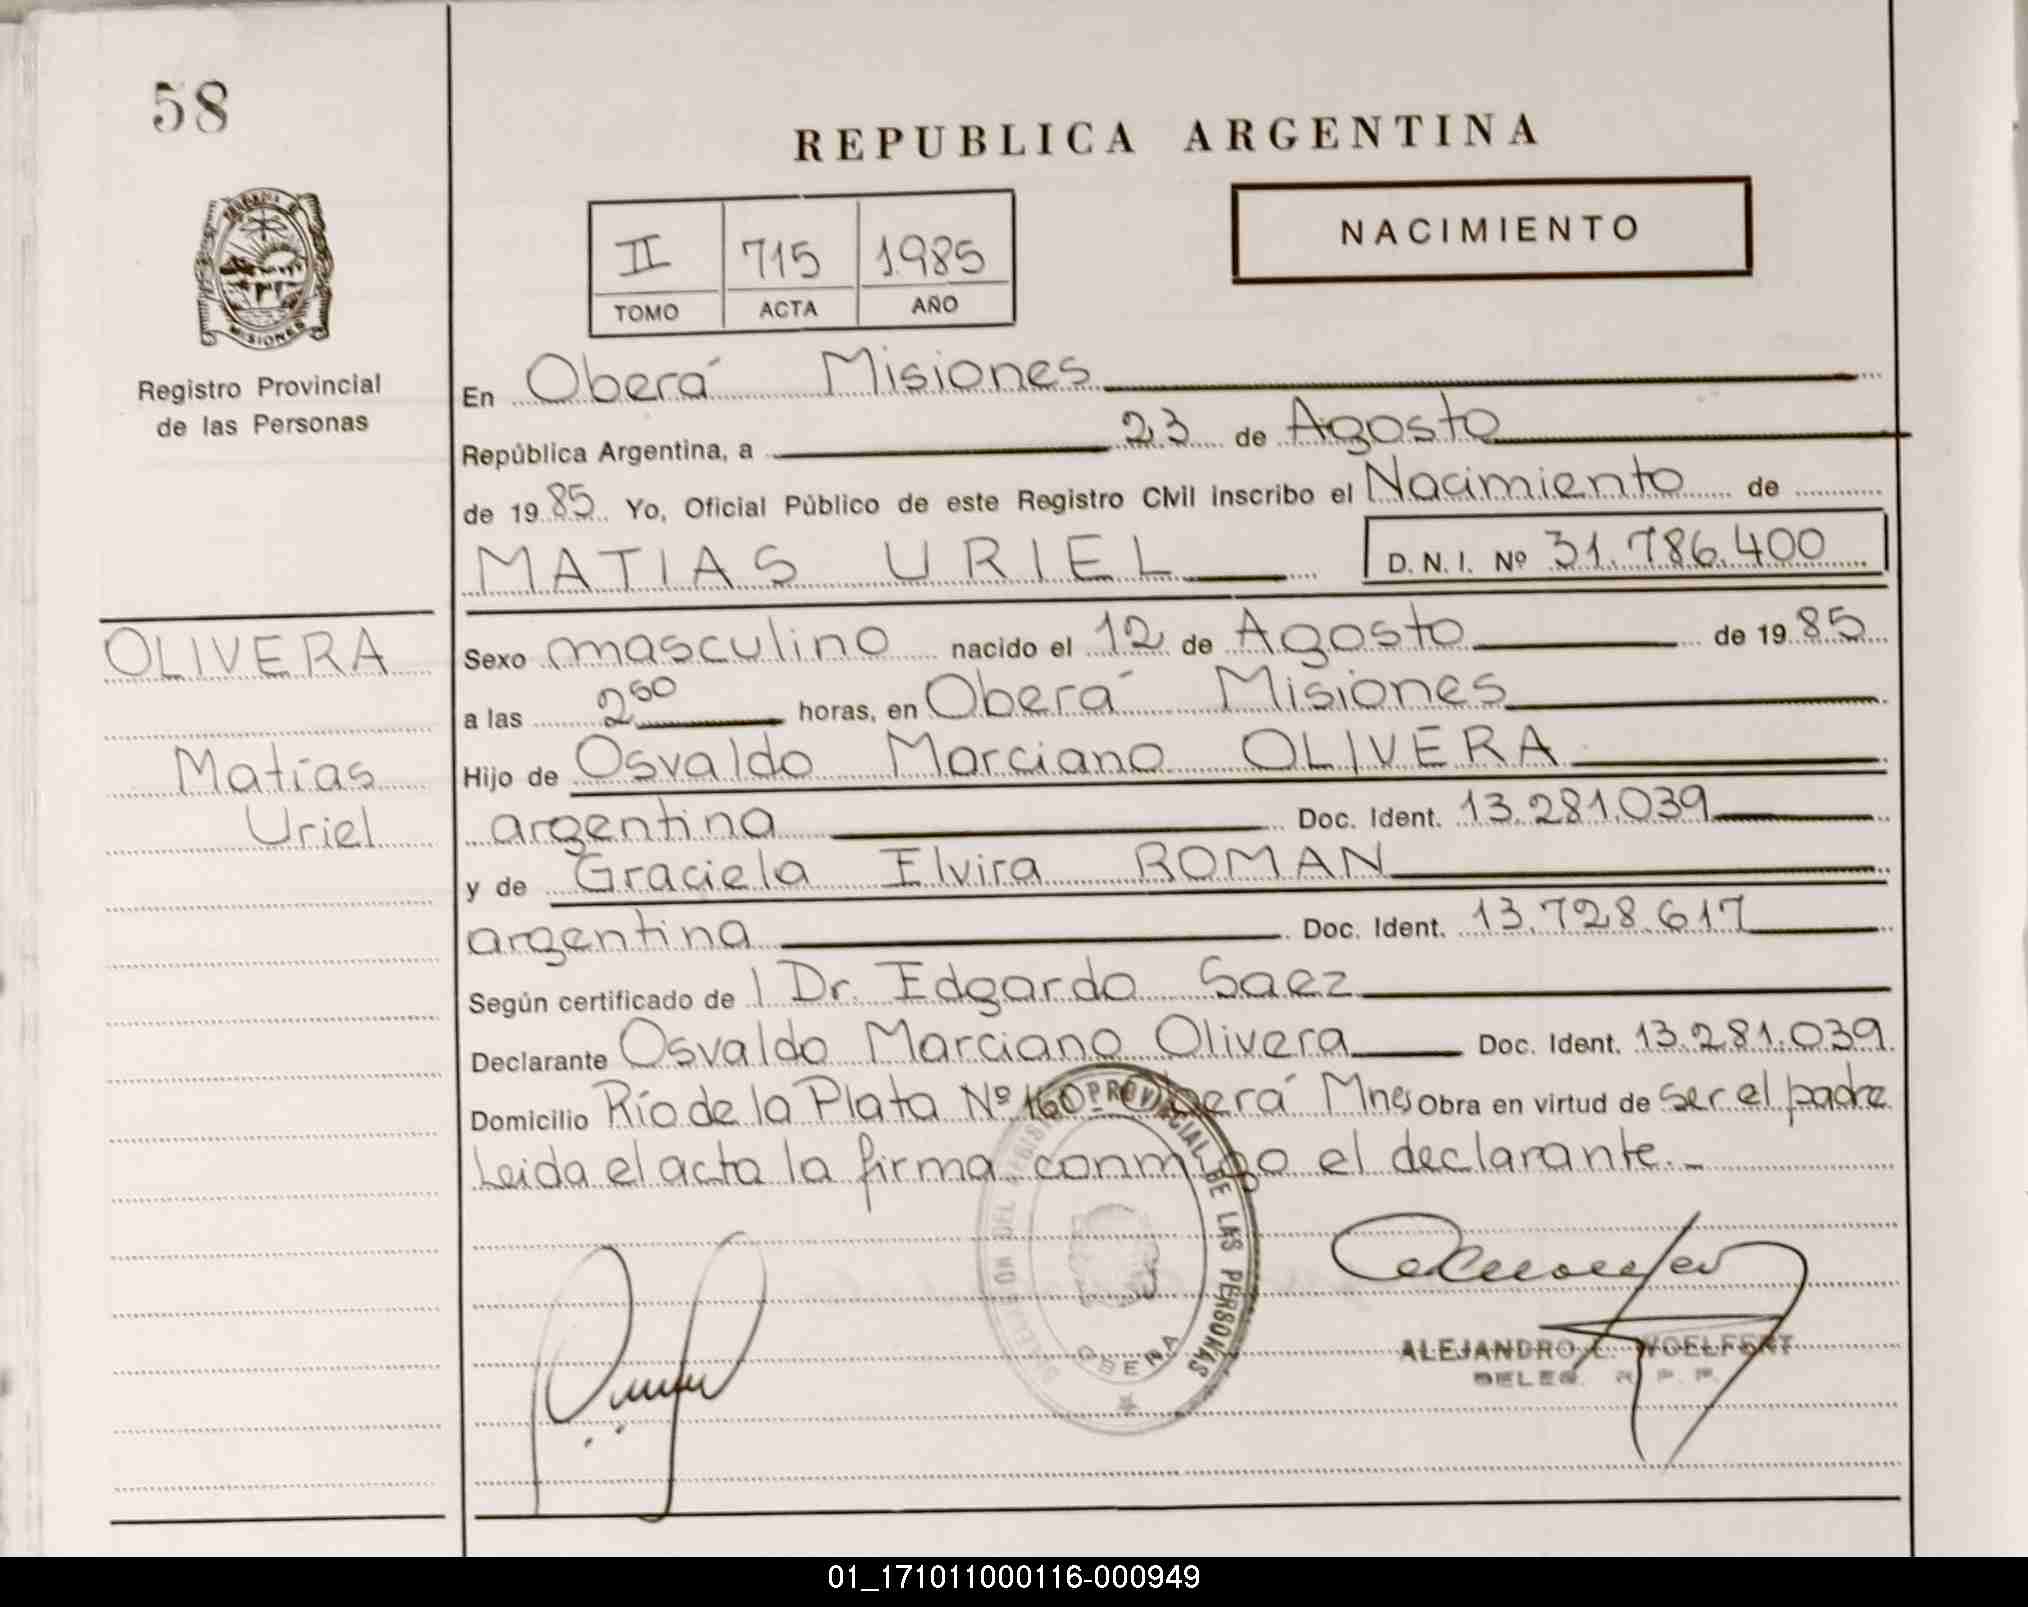 58
REPUBLICA ARGENTINA
NACIMIENTO
II 715 1985
TOMO ACTA AÑO
MISIONES
Registro Provincial
de las Personas
En Oberá Misiones
República Argentina, a 23 de Agosto
de 1985 Yo, Oficial Público de este Registro Civil inscribo el Nacimiento de
MATIAS URIEL D.N.I. Nº 31.786.400
OLIVERA
Matías
Uriel
Sexo masculino nacido el 12 de Agosto de 1985
a las horas, en Oberá Misiones
Hijo de Osvaldo Marciano OLIVERA
argentina Doc. Ident. 13.281.039
y de Graciela Elvira ROMAN
argentina Doc. Ident. 13.728.617
Según certificado de Dr. Edgardo Saez
Declarante Osvaldo Marciano Olivera Doc. Ident. 13.281.039
Domicilio Río de la Plata Nº 160 Oberá Mnes Obra en virtud de ser el padre
Leida el acta la firma conmigo el declarante.-
DEL REGISTRO PROVINCIAL DE LAS PERSONAS
OBERA
ALEJANDRO WOELFERT
DELEG. R. P. P.
01_171011000116-000949